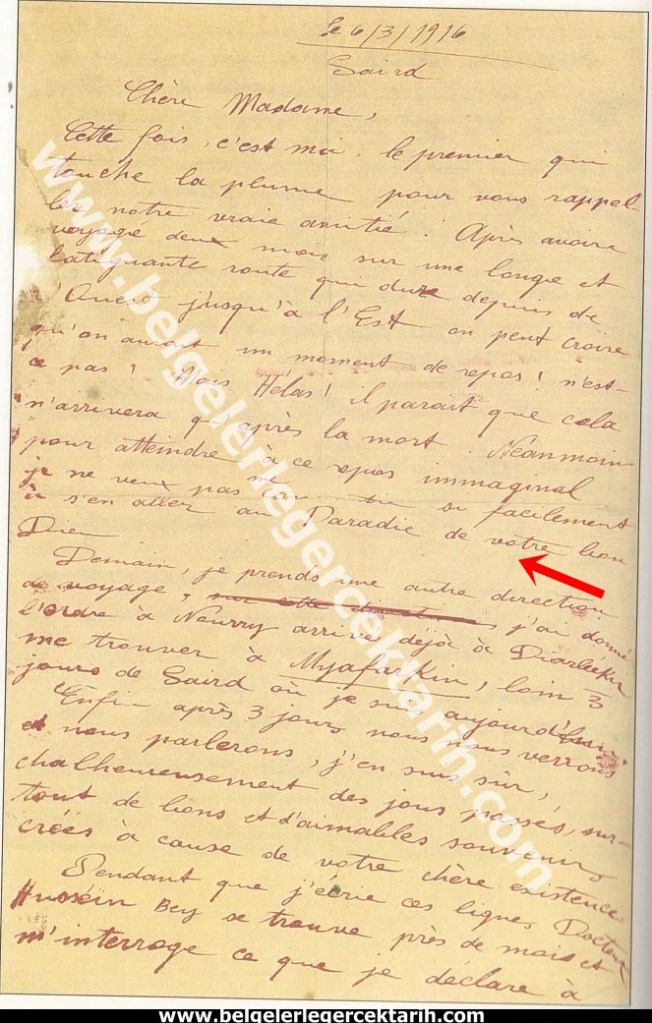 le 6/3/1916
Saird
Chère Madame,
Cette fois, c'est moi, le premier qui
touche la plume pour vous rappel-
ler notre vraie amitié. Après avoire
voyagé deux mois sur une longe et
fatiguante route qui dure depuis de
l'Ouest jusqu'à l'Est on peut croire
qu'on aurait un moment de repos! n'est-
ce pas! Mais Hélas! il parait que cela
n'arrivera qu'après la mort. Néanmoin
pour atteindre à ce repos immaginal
je ne veux pas si facilement
à s'en aller au Paradie de votre bon
Dieu
Demain, je prends une autre direction
de voyage, j'ai donné
l'ordre à Nourry arrivé déjà à Diarbekir
me trouver à Myafarkin, loin 3
jours de Saird où je suis aujourd'hui
Enfin après 3 jours nous nous verrons
et nous parlerons, j'en suis sûr,
chalheureusement des jours passés, sur-
tout de bons et d'aimables souvenirs
créés à cause de votre chère existence
Pendant que j'écrie ces lignes Docteur
Hussein Bey se trouve près de mois et
m'interroge ce que je déclare à
www.belgelerlegercektarih.com
www.belgelerlegercektarih.com